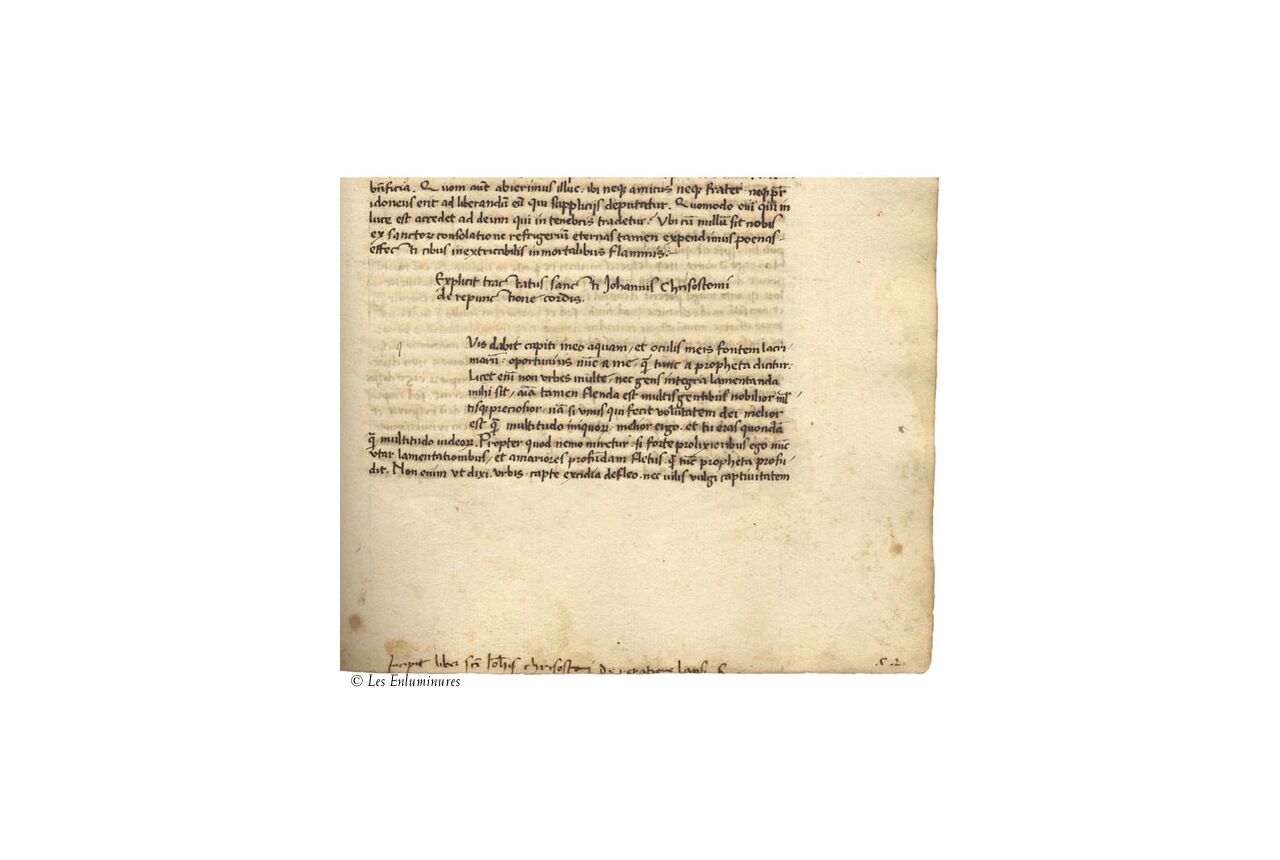 bn̄ficia. Quom aūt abierimus illuc. ibi neq; amicus neq; frater neq; pr̄
idoneus erit ad liberandū eū qui supplicijs deputatur. Quomodo enī qui in
luce est accedet ad deum qui in tenebris tradetur. Vbi cū nullū sit nobis
ex sanctoꝝ consolatione refrigeriū eternas tamen expendimus poenas
effecti cibus inextricabilis inmortalibus flammis.
Explicit tractatus sancti Johannis Chrisostomi
de repunctione cordis.
Vis dabit capiti meo aquam, et oculis meis fontem lacri-
marū. oportunius nūc a me. q̄ tunc a propheta dicitur.
Licet enī non vrbes multe. nec gens integra lamentanda
mihi sit, aīa tamen flenda est multis gentibus nobilior ml̄
tisq; preciosior. nā si vnus qui fecit volūtatem dei melior
est q̄ multitudo iniquoꝝ. melior ergo. et tu eras quondā
q̄ multitudo iudeoꝝ. Propter quod nemo miretur. si forte prolixioribus ego nūc
vtar lamentationibus, et amariores profundam fletus. q̄ tūc propheta profu-
dit. Non enim vt dixi. vrbis. capte excidia defleo. nec vilis vulgi captiuitatem
Incipit liber scī Ioh̄is chrisostomi de reparatione lapsi
.c.2.
© Les Enluminures